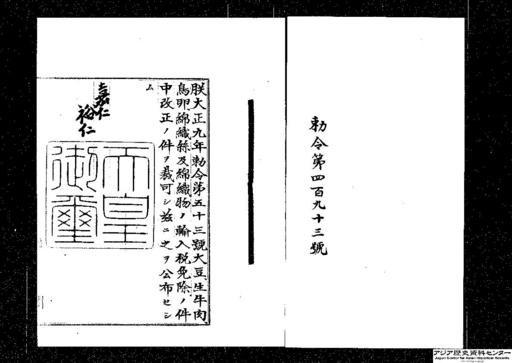 勅令第四百九十三號
朕大正九年勅令第五十三號大豆、生牛肉、
鳥卵、綿織絲及綿織物ノ輸入税免除ノ件
中改正ノ件ヲ裁可シ茲ニ之ヲ公布セシ
ム
嘉仁
裕仁
天皇
御璽
アジア歴史資料センター
Japan Center for Asian Historical Records